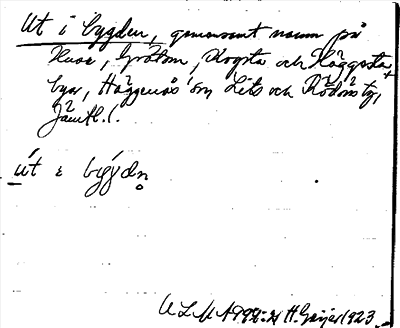 Ut i bygden, gemensamt namn på
Huse, Gråtom, Kogsta och Häggesta
byar, Häggenås sn, Lits och Rödöns tg,
Jämtl. l.
út i býgdn
ULMA 994:21 H. Geijer 1923.